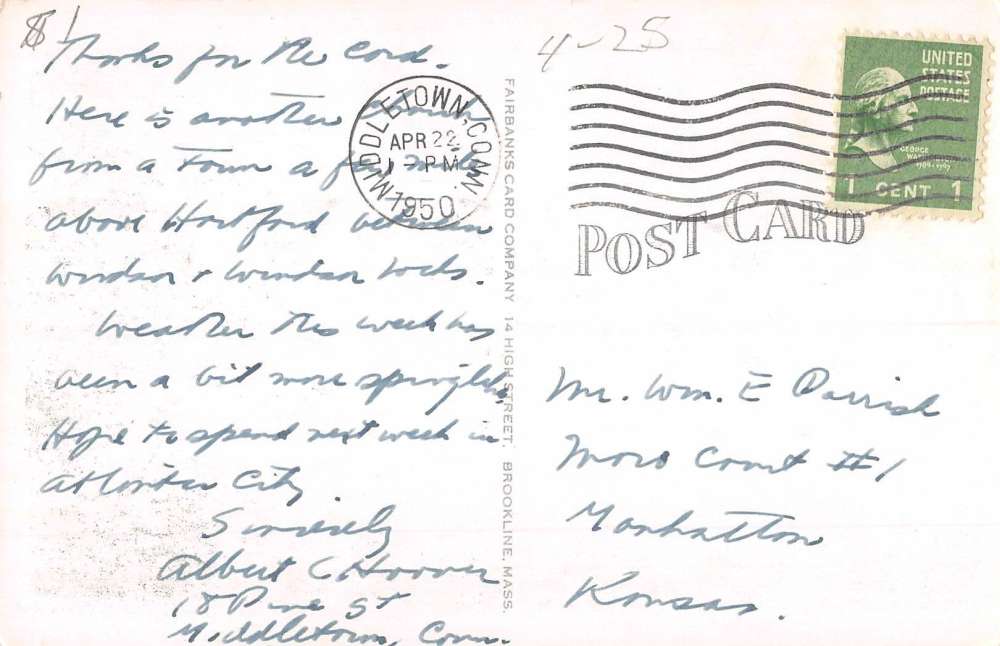 $1
4-25
Thanks for the card.
Here is another
from a Town a few miles
above Hartford between
Windsor & Windsor Locks.
Weather this week has
been a bit more springlike.
Hope to spend next week in
Atlantic City
Sincerely
Albert C Hoover
18 Pine St
Middletown, Conn.
MIDDLETOWN, CONN.
APR 22
PM
1950
FAIRBANKS CARD COMPANY 14 HIGH STREET. BROOKLINE, MASS.
UNITED
STATES
POSTAGE
GEORGE
WASHINGTON
1 CENT 1
POST CARD
Mr. Wm. E Parrish
Moro Court #1
Manhattan
Kansas.